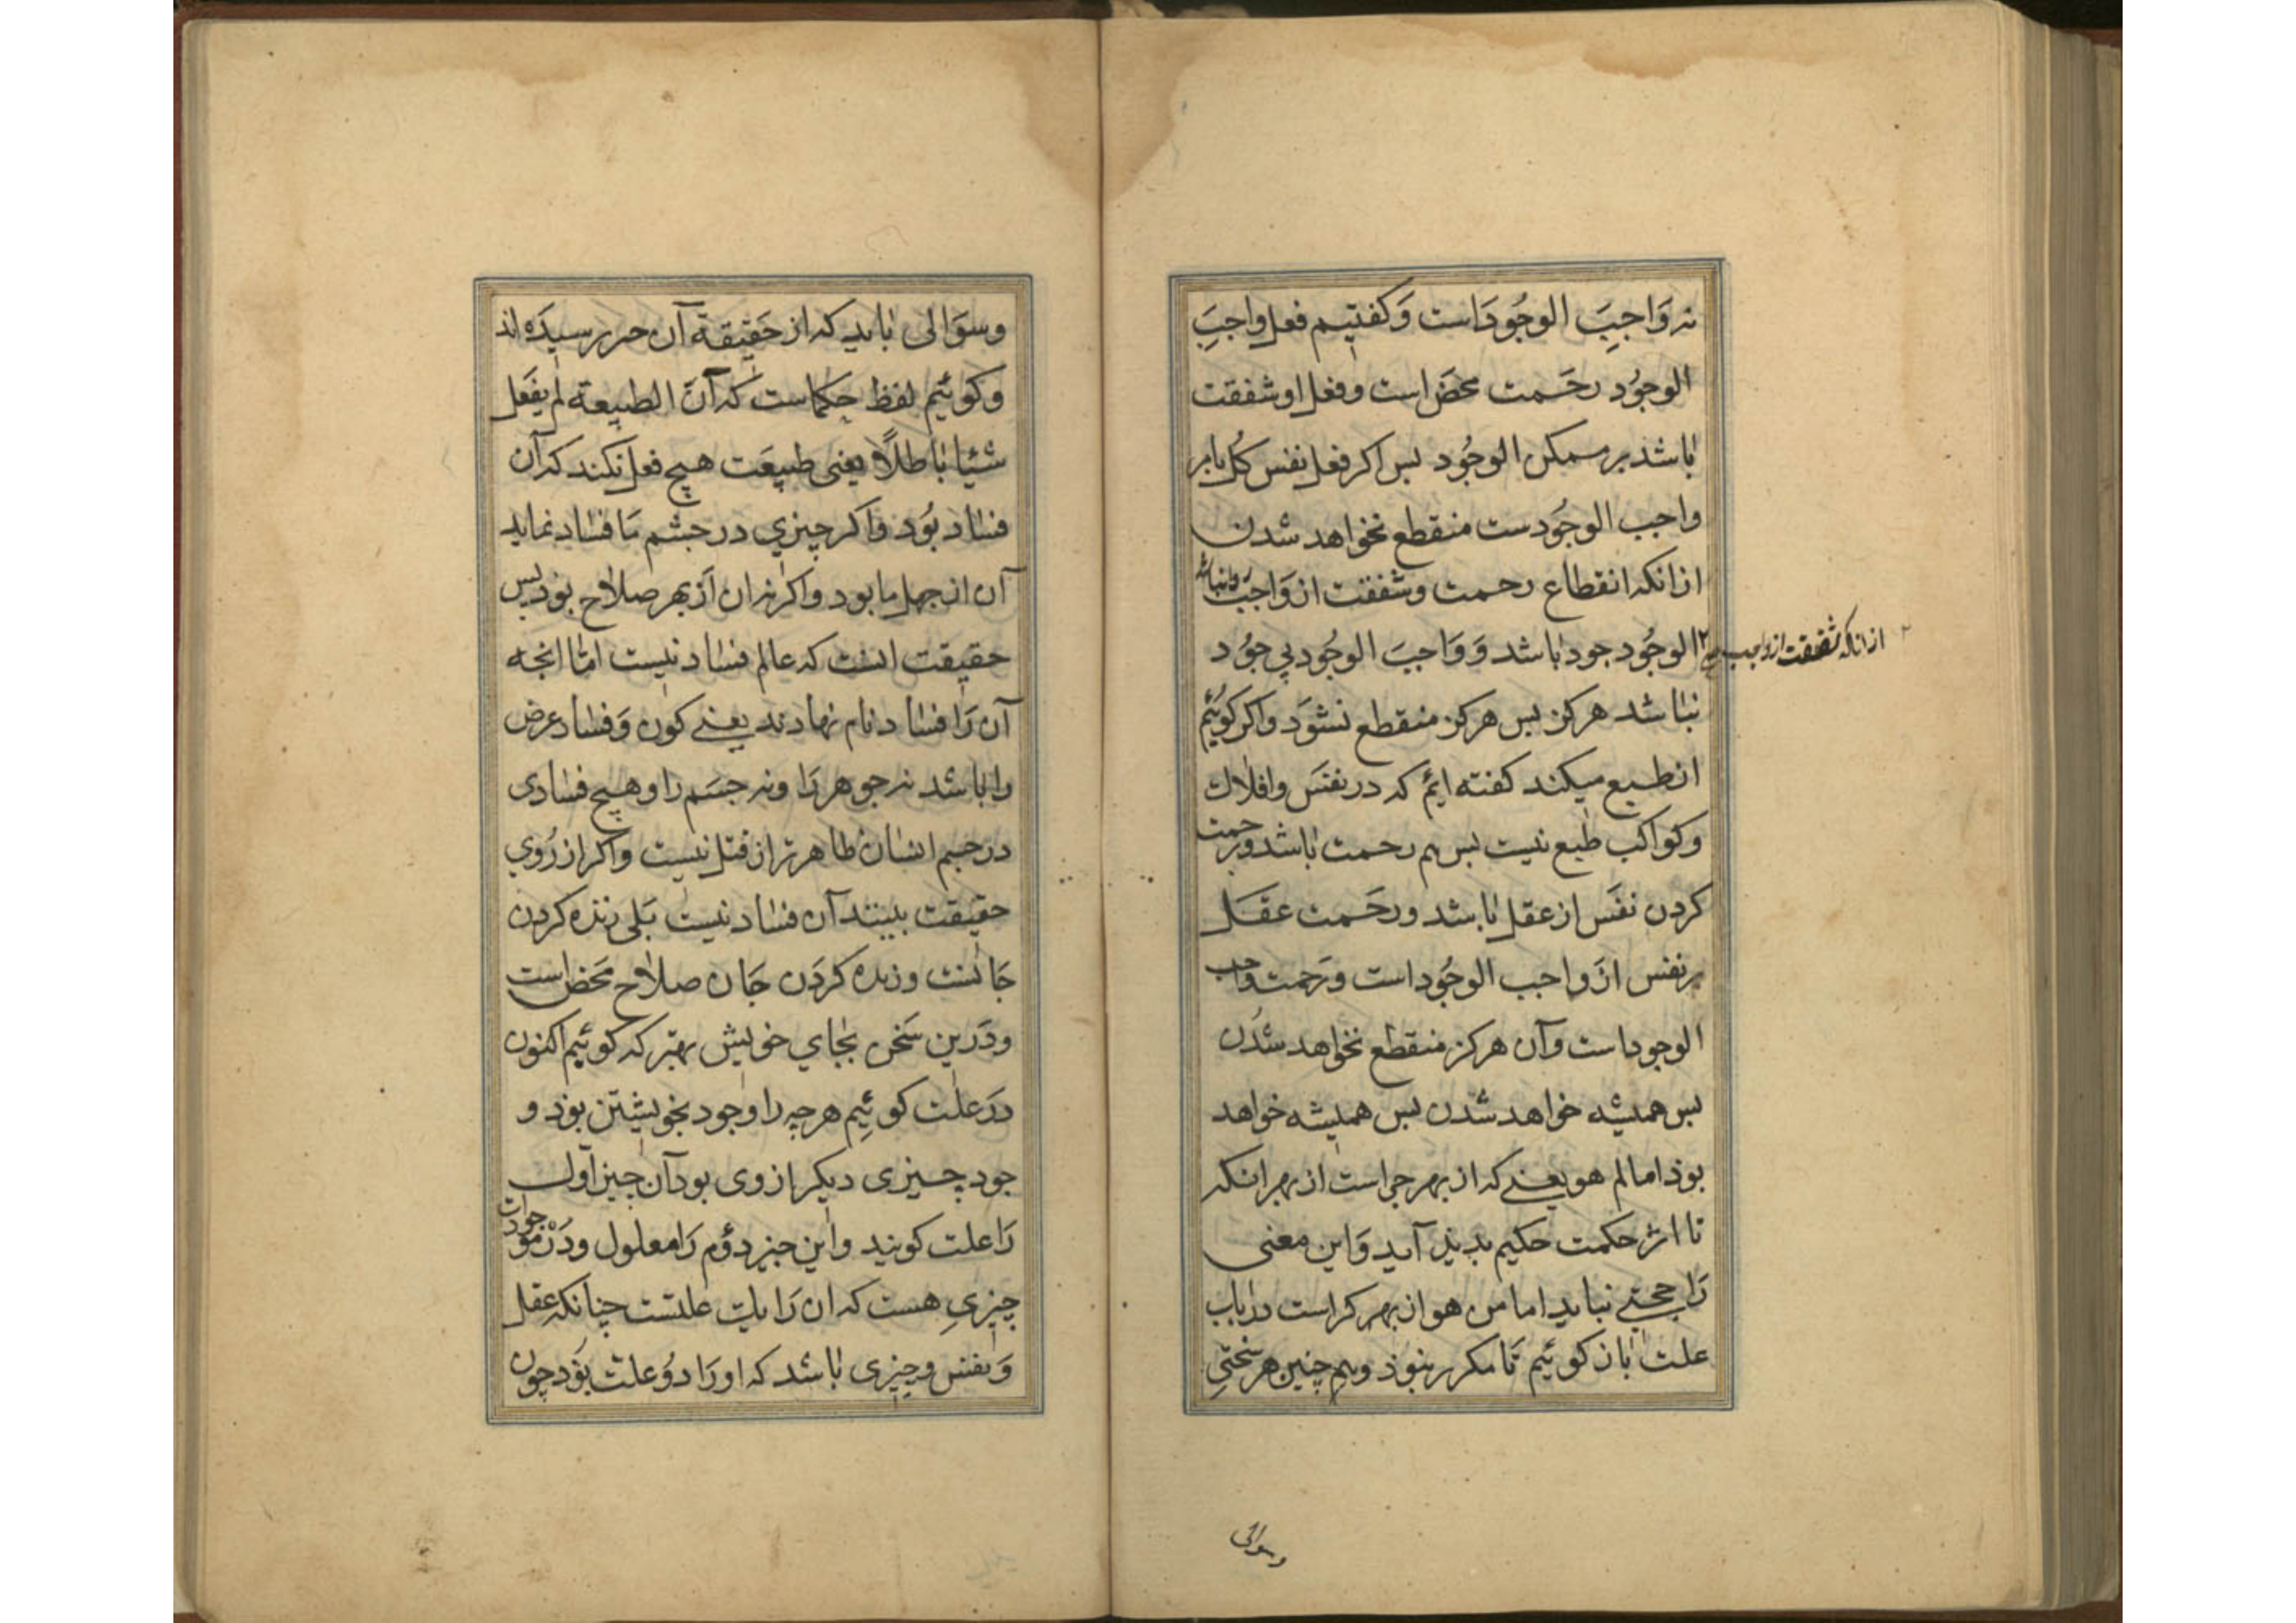 نه وَاجبِ الوجُودَاست وَکفتیم فعل واجبِ
الوجوُد رحَمت محضَ است وفعل او شفقت
باشد بر ممکن الوجُود بس اکر فعل نفس کل بامر
واجب الوجُودست منقطع نخواهد شدن
از انکه انقطاع رحمت وشفقت از وَاجب روا نباشد
از انکه شفقت از واجب
الوجُود جود باشد وَ وَاجبَ الوجُود بی جوُد
نباشد هرکز بس هرکز منقطع نشوَد واکر کوئیم
از طبع میکند کفته ایم که در نفسَ وافلاك
وکواکب طبع نیست بس هم رحمت باشد ورحمت
کردن نفَس از عقل باشد ورحَمت عقل
بر نفس از واجب الوجُود است ورَحمت واجب
الوجود است وآن هرکز منقطع نخواهد شدُن
بس همیشه خواهد شدن بس همیشه خواهد
بوذ اما لم هو یعنے که از بهر جراست از بهر انکه
تا اثر حکمت حکیم بدیذ آید وَاین معنی
رَا حجتے نباید اما من هو از بهر کراست در باب
علت باز کوئیم تَا مکرر نبوذ وهم چنین هر سختی
وسوالی
وسوَالی باید که از حَقیقة آن برسیدَه اند
وکوئیم لفظ حکماست که آنّ الطبیعة لم یفعَل
شئیا باطلًا یعنی طبیعَت هیچ فعل نکند که آن
فساد بوُد واکر چیزي در جشم مَا فساد نماید
آن از جهل ما بود واکر نه ان اَز بهر صلاح بوذ بس
حقیقت انست که عالم فساد نیست امّا انجه
آن رَا فساد نام نهادند یعنے کون وَفساد عرض
را باشد نه جوهر رَا ونه جسَم را وهیچ فسادی
در جسم انسان ظاهرتر از قتل نیست واکر از رُوي
حقیقت ببینند آن فساد نیست بَلی زنده کردن
جَانست وزنده کردَن جَان صلاح محَض است
ودَرین سَخن بجاي خویش بهتر که کوئیم اکنون
دَر علت کوئیِم هرچه را وجود بخویشتن بوَد و
جود چیزی دیکر از وی بود آن جیز اوّل
رَا علت کویند واین جیز دوُم رَا معلول ودَر موجودات
چیزي هست که ان رَا یك علتست چنانکه عقل
وَ نفس وچیزی باشد که او رَا دوُ علت بوَد چون